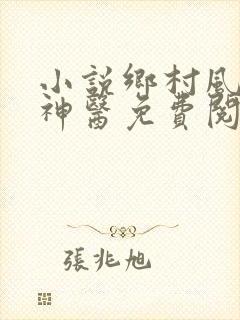 小說鄉村風
神醫免費閱
張兆旭